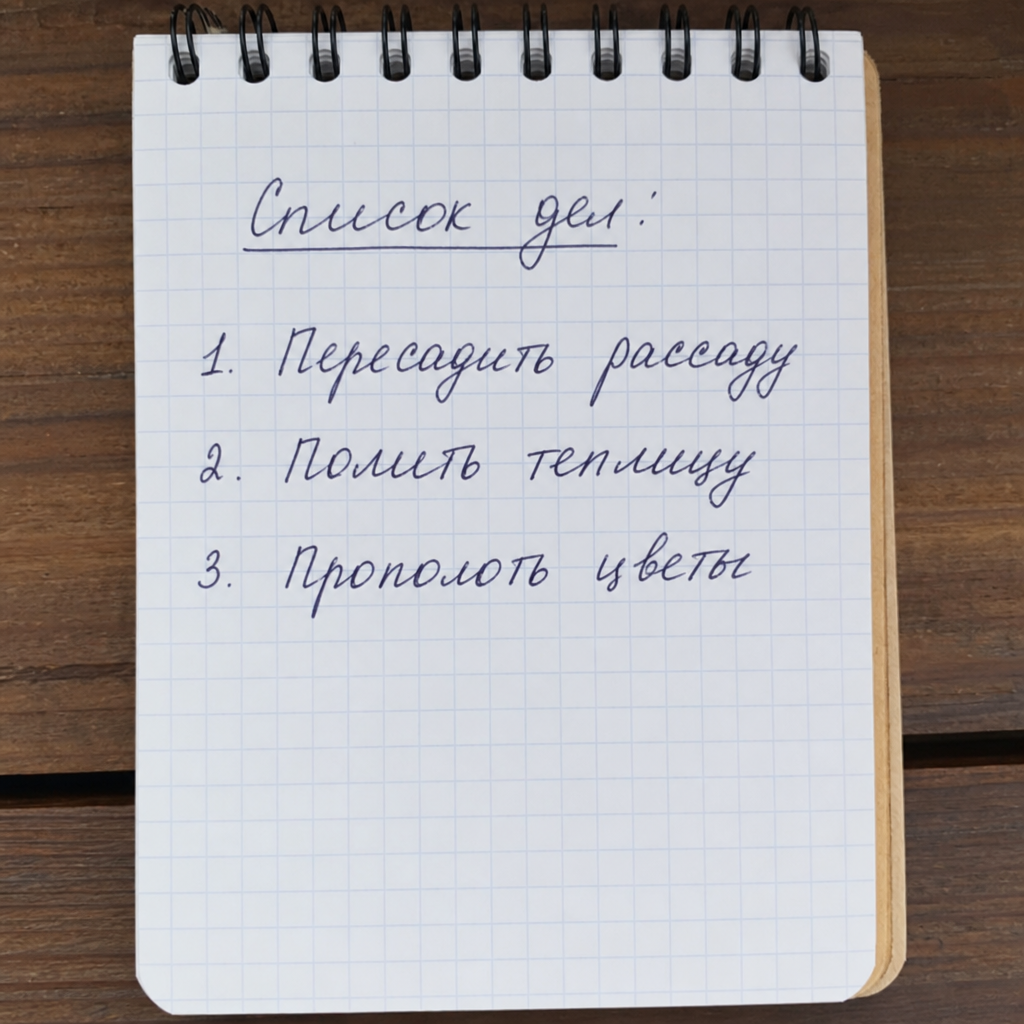 Список дел:
1. Пересадить рассаду
2. Полить теплицу
3. Прополоть цветы